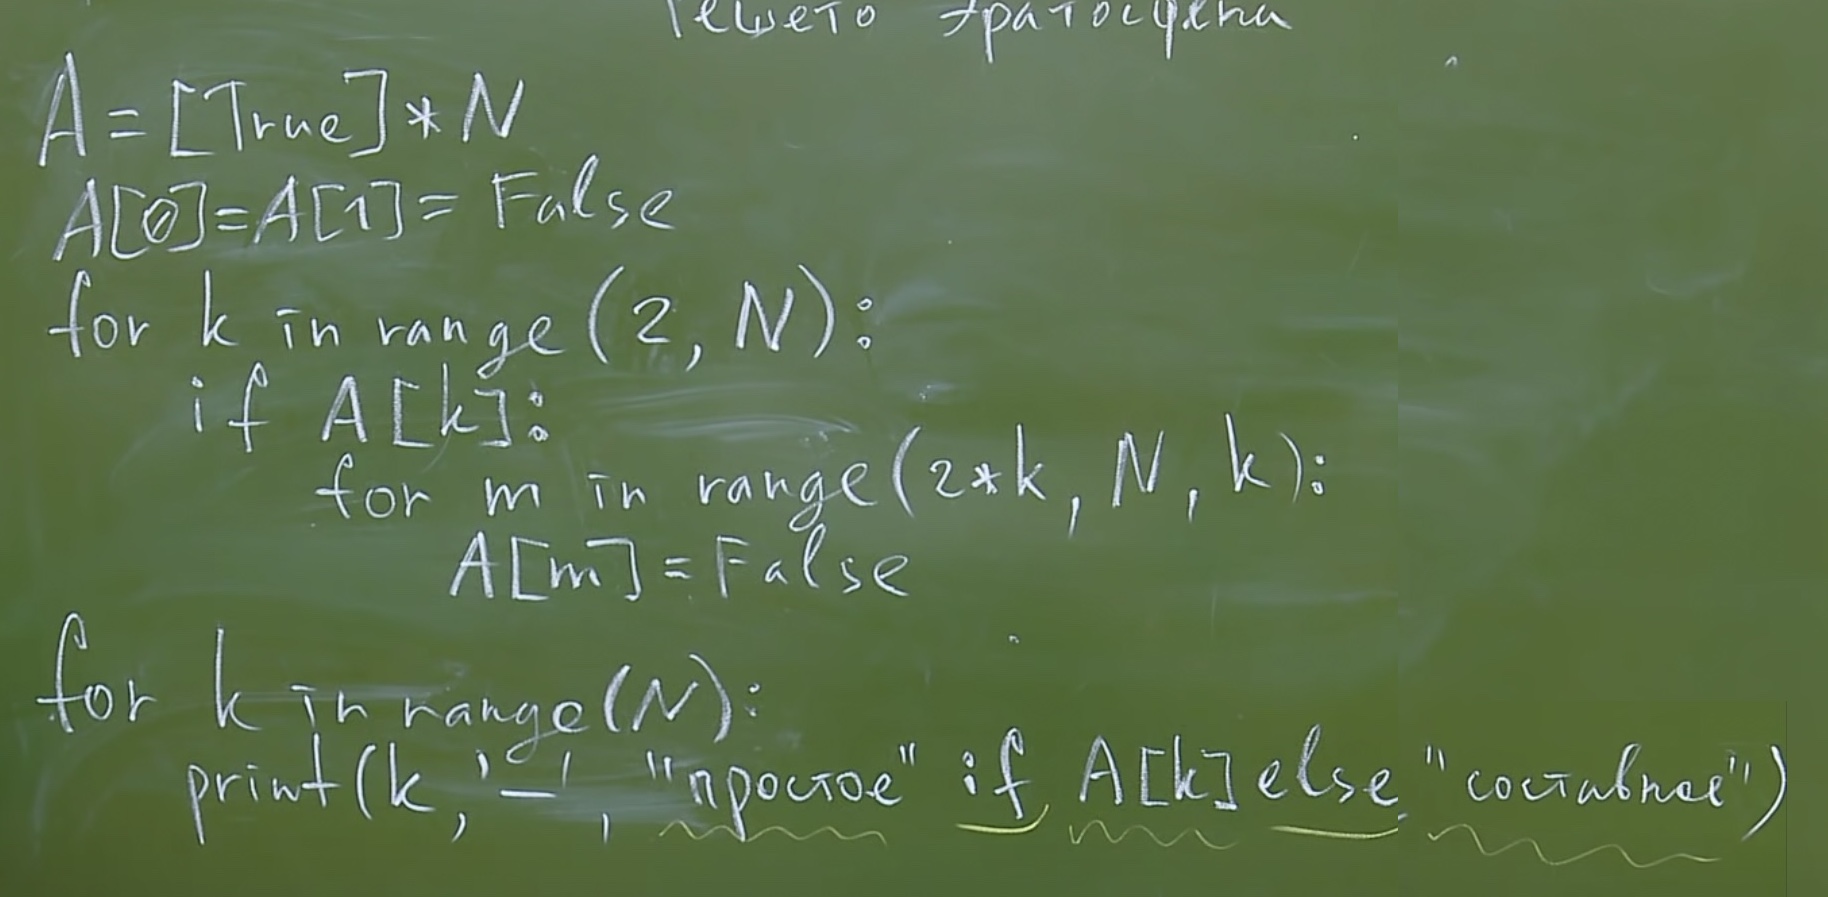 Решето Эратосфена
A = [True] * N
A[0] = A[1] = False
for k in range (2, N):
if A[k]:
for m in range (2*k, N, k):
A[m] = False
for k in range(N):
print(k, '-', "простое" if A[k] else "составное")